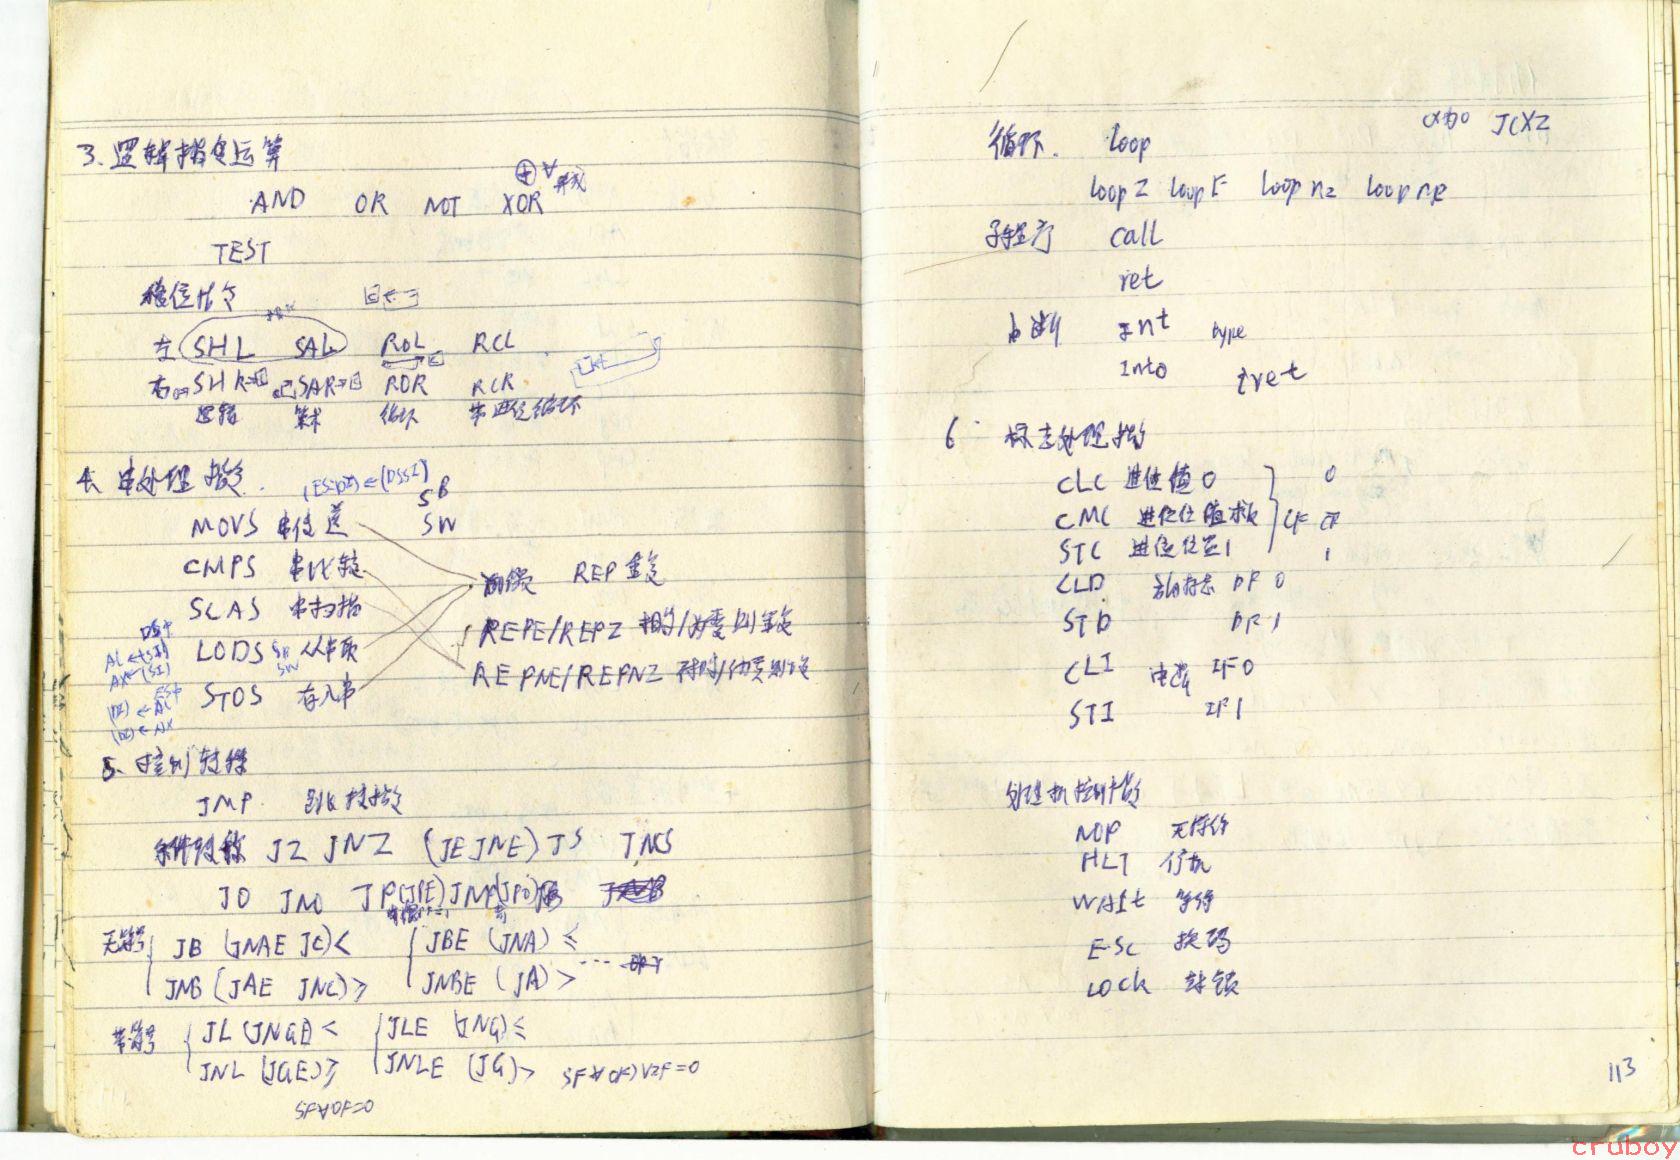 3. 逻辑指令运算
⊕ ∀ 异或
AND OR NOT XOR
TEST
移位指令
左 SHL SAL ROL RCL
右 SHR SAR ROR RCR
逻辑 算术 循环 带进位循环
4. 串处理指令
(ES:DI) ← (DSSI)
SB
MOVS 串传送 SW
CMPS 串比较
REP 重复
SCAS 串扫描
REPE/REPZ 相等/为零则重复
DS+
AL ← (SI)
AX ← (SI)
LODS SB SW 从串取
REPNE/REPNZ
ES+
(DI) ← AL
(DI) ← AX
STOS 存入串
5. 控制转移
JMP 跳转指令
条件转移 JZ JNZ (JE JNE) JS JNS
JO JNO JP(JPE) JNP(JPO)
无符号 JB (JNAE JC) < JBE (JNA) ≤
JNB (JAE JNC) ≥ JNBE (JA) >
带符号 JL (JNGE) < JLE (JNG) ≤
JNL (JGE) ≥ JNLE (JG) > SF∀OF)VZF=0
SF∀OF=0
循环. loop JCXZ
loopZ loopE loopnz loopne
子程序 call
ret
中断 Int type
Into iret
6. 标志处理指令
CLC 进位值0 0
CMC 进位位值求反 CF
STC 进位位置1 1
CLD 方向标志 DF 0
STD DF 1
CLI 中断 IF0
STI IF1
处理机控制指令
NOP 无操作
HLT 停机
WAIt 等待
ESC 换码
LOCK 封锁
113
cruboy